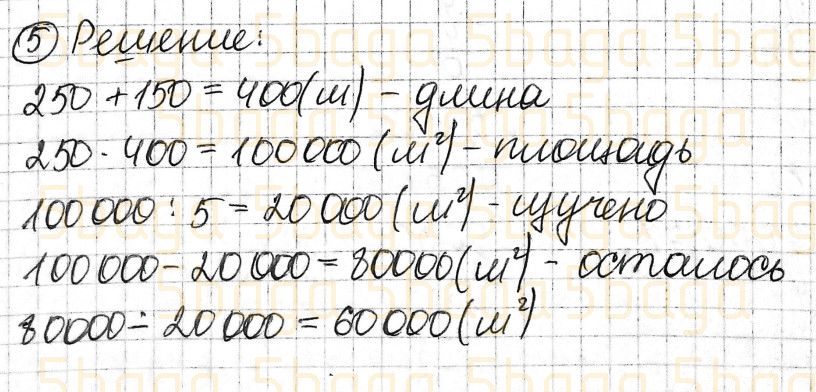 ⑤ Решение:
250 + 150 = 400 (м) - длина
250 · 400 = 100000 (м²) - площадь
100 000 : 5 = 20 000 (м²) - изучено
100 000 - 20 000 = 80000 (м²) - осталось
80000 - 20 000 = 60 000 (м²)